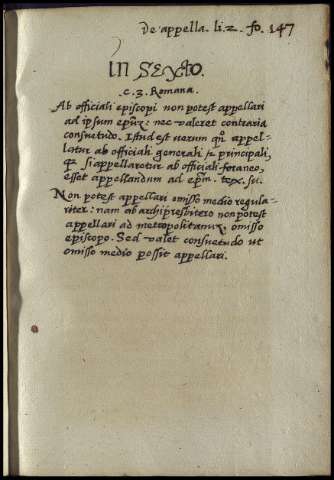 De appella. li. 2. fo. 147
IN SEXTO.
c. 3. Romana.
Ab officiali episcopi non potest appellari
ad ipsum epũ; nec valeret contraria
consuetudo. Istud est verum qñ appel-
latur ab officiali generali et principali,
si appellaretur ab officiali foraneo,
esset appellandum ad epm. tex. su.
Non potest appellari omisso medio regula-
riter: nam ab archipresbitero non potest
appellari ad metropolitanũ, omisso
episcopo. Sed valet consuetudo ut
omisso medio possit appellari.